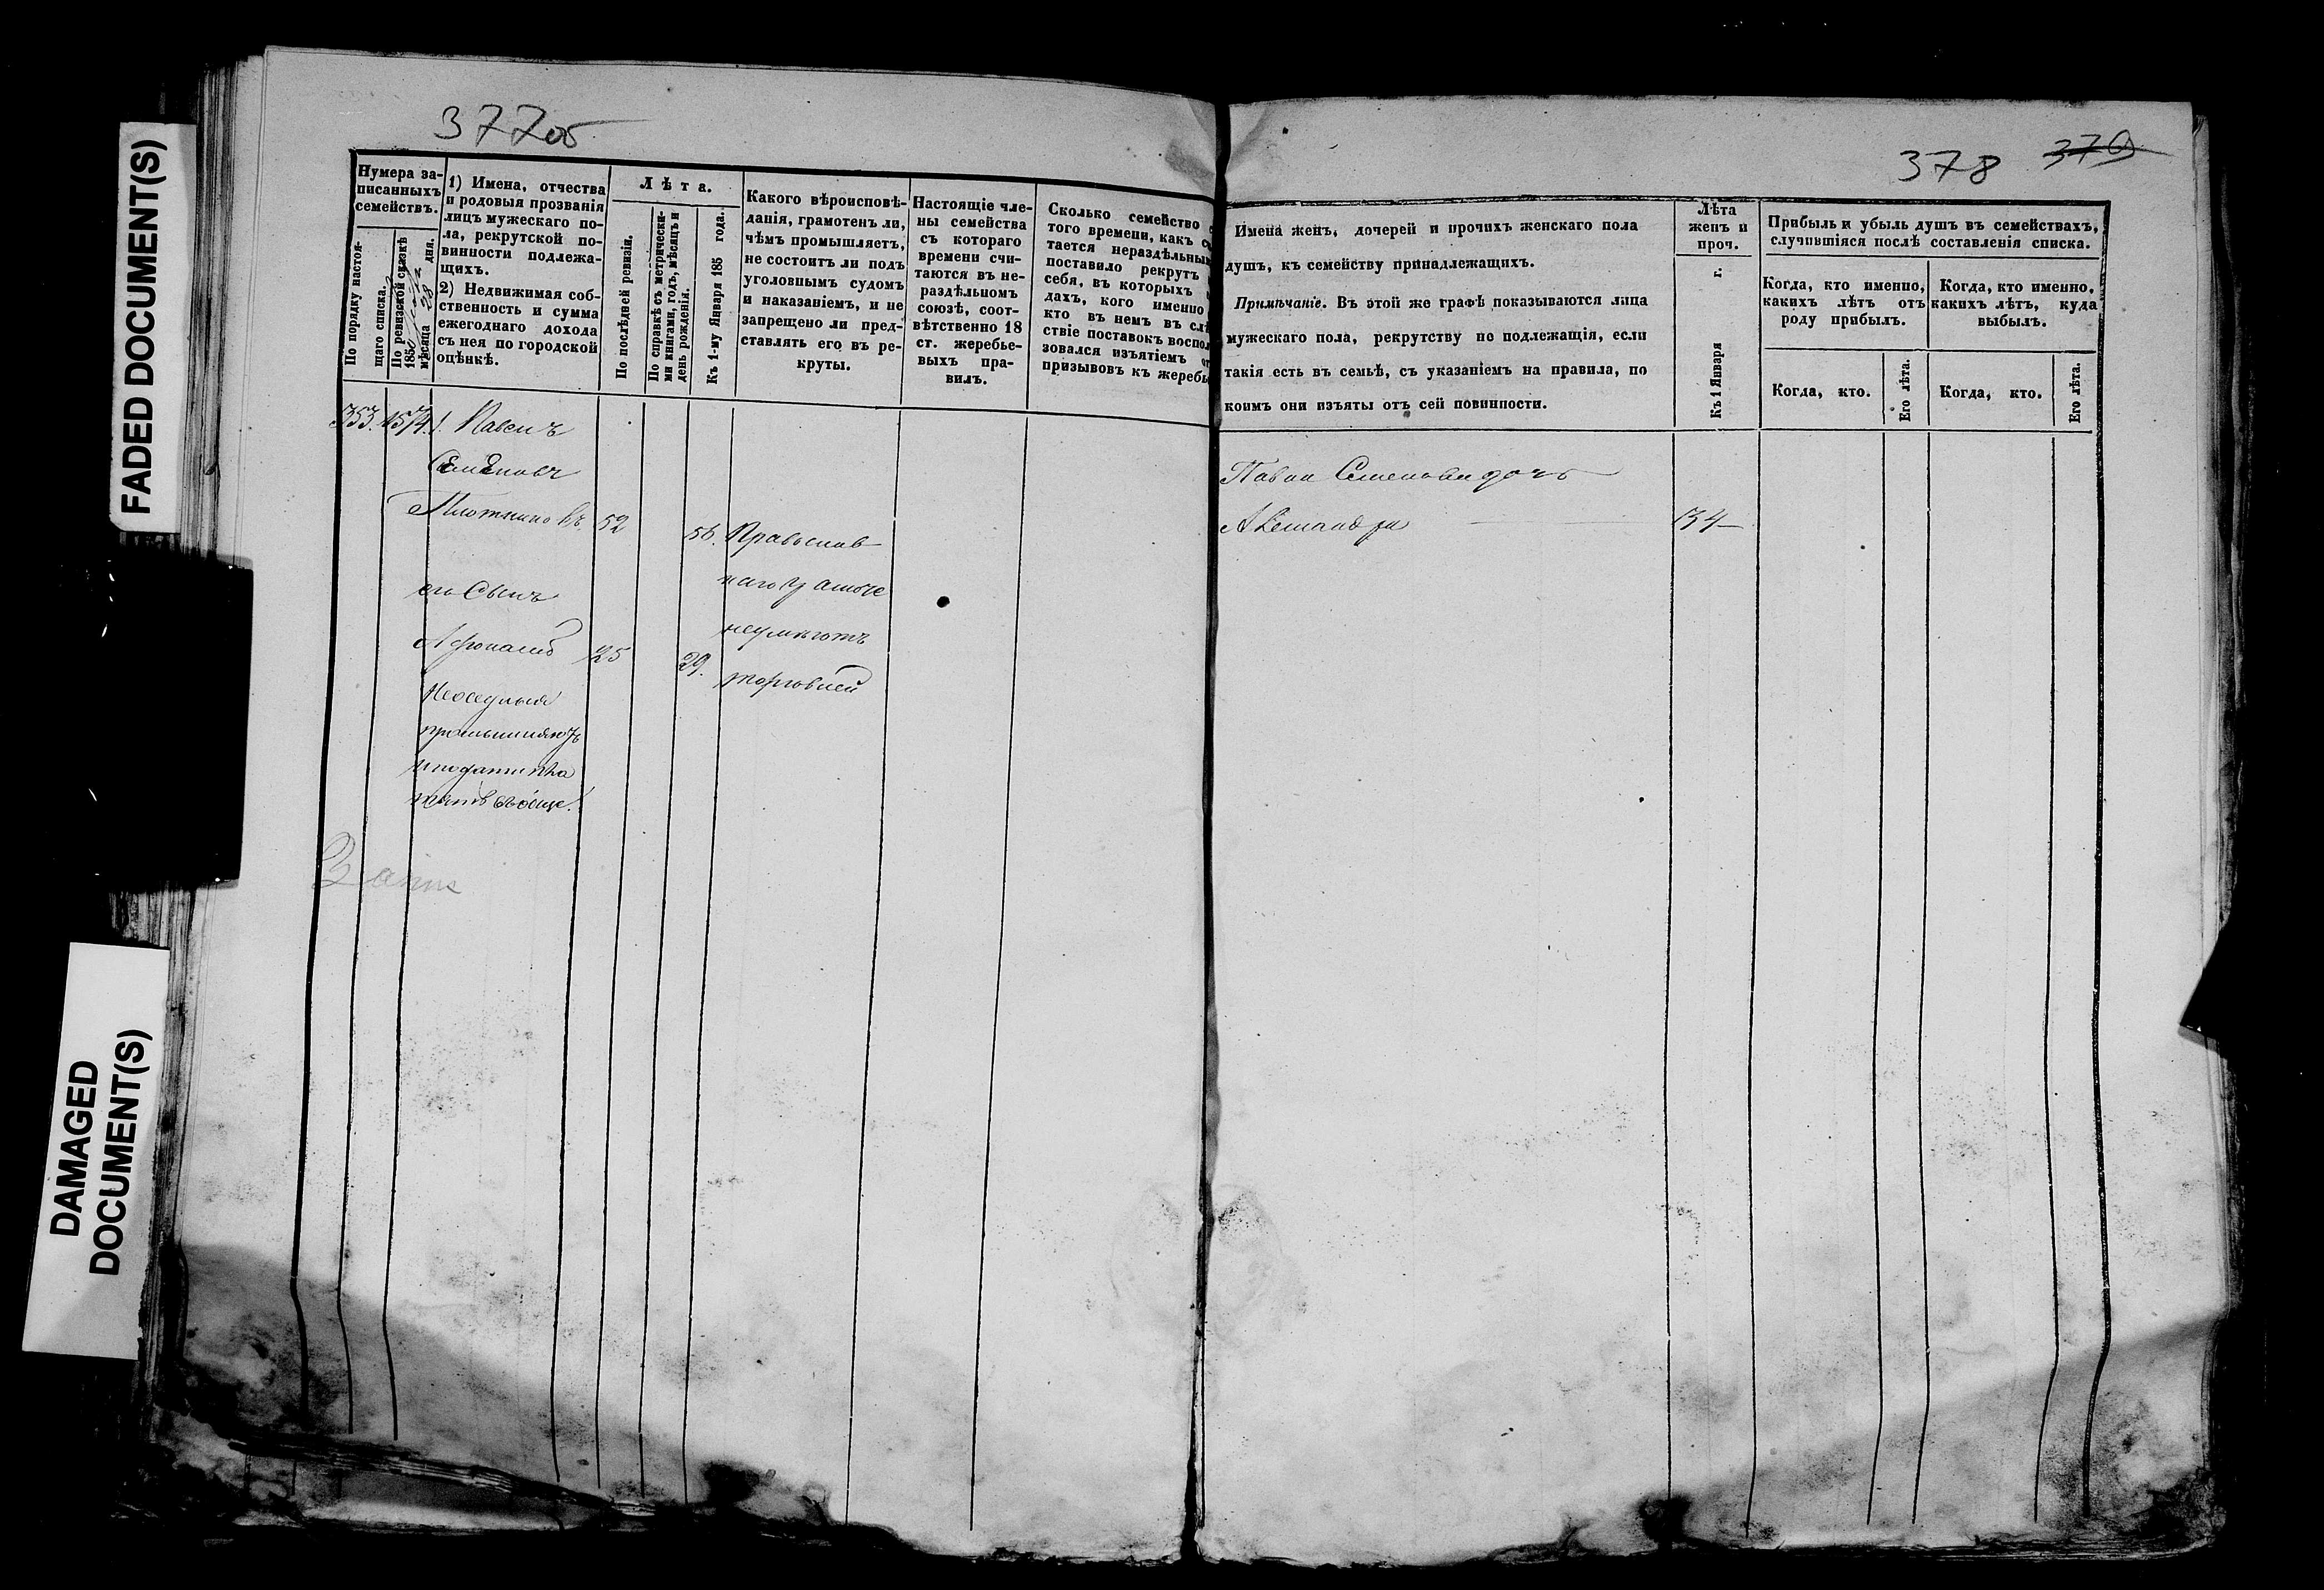 FADED DOCUMENT(S)
DAMAGED
DOCUMENT(S)
377об
Нумера за-
писанныхъ
семействъ.
По порядку настоя-
щаго списка.
По ревизской сказкѣ
1850
мѣсяца 28 дня.
1) Имена, отчества
и родовыя прозванія
лицъ мужескаго по-
ла, рекрутской по-
винности подлежа-
щихъ.
2) Недвижимая соб-
ственность и сумма
ежегоднаго дохода
съ нея по городской
оцѣнкѣ.
Лѣта.
По послѣдней ревизіи.
По справкѣ съ метрически-
ми книгами, годъ, мѣсяцъ и
день рожденія.
Къ 1-му Января 185 года.
Какого вѣроисповѣ-
данія, грамотенъ ли,
чѣмъ промышляетъ,
не состоитъ ли подъ
уголовнымъ судомъ
и наказаніемъ, и не
запрещено ли пред-
ставлять его въ ре-
круты.
Настоящіе чле-
ны семейства
съ котораго
времени счи-
таются въ не-
раздѣльномъ
союзѣ, соот-
вѣтственно 18
ст. жеребье-
выхъ пра-
вилъ.
Сколько семейство с
того времени, какъ с
тается нераздѣльным
поставило рекрутъ
себя, въ которыхъ
дахъ, кого именно
кто въ немъ въ слѣ
ствіе поставокъ воспол
зовался изъятіемъ от
призывовъ къ жеребь
353. 1574. 1. Павелъ
Семеновъ
Плотниковъ 52 56. Православ
его Сынъ
неумѣютъ
25 29. торговлей
Неоседлыя
промышляютъ
378 379
Имена женъ, дочерей и прочихъ женскаго пола
душъ, къ семейству принадлежащихъ.
Примѣчаніе. Въ этой же графѣ показываются лица
мужескаго пола, рекрутству не подлежащія, если
такія есть въ семьѣ, съ указаніемъ на правила, по
коимъ они изъяты отъ сей повинности.
Лѣта
женъ и
проч.
Къ 1 Января г.
Прибыль и убыль душъ въ семействахъ,
случившіяся послѣ составленія списка.
Когда, кто именно,
какихъ лѣтъ отъ
роду прибылъ.
Когда, кто именно,
какихъ лѣтъ, куда
выбылъ.
Когда, кто.
Его лѣта.
Когда, кто.
Его лѣта.
Павла Семенова дочь
Александра 34